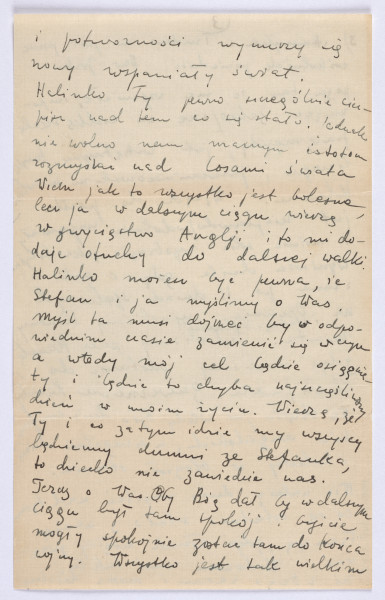 3
i potworności wynurzy się
nowy wspaniały świat.
Halinko Ty pewno szczególnie cier-
pisz nad tem co się stało. Jednak
nie wolno nam marnym istotom
rozmyślać nad losami świata
Wiem jak to wszystko jest bolesne,
lecz ja w dalszym ciągu wierzę
w zwycięstwo Anglji i to mi do-
daje otuchy do dalszej walki
Halinko możesz być pewna, że
Stefan i ja myślimy o Was.
Myśl ta musi dojrzeć by w odpo-
wiednim czasie zamienić się w czyn
a wtedy mój cel będzie osiągnię
ty i będzie to chyba najszczęśliwszy
dzień w moim życiu. Wierzę, że
Ty i co zatym idzie my wszyscy
będziemy dumni ze Stefanka,
to dziecko nie zawiedzie nas.
Teraz o Was. Oby Bóg dał by w dalszym
ciągu był tam spokój i byście
mogły spokojnie zostać tam do końca
wojny. Wszystko jest tak wielkim